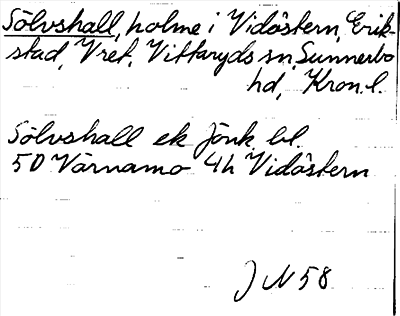 Sölvshall, holme i Vidöstern, Erik-
stad, Vret, Vittaryds sn, Sunnerbo
hd, Kron. l.
Sölvshall ek Jönk. bl.
50 Värnamo 4h Vidöstern
J N 58